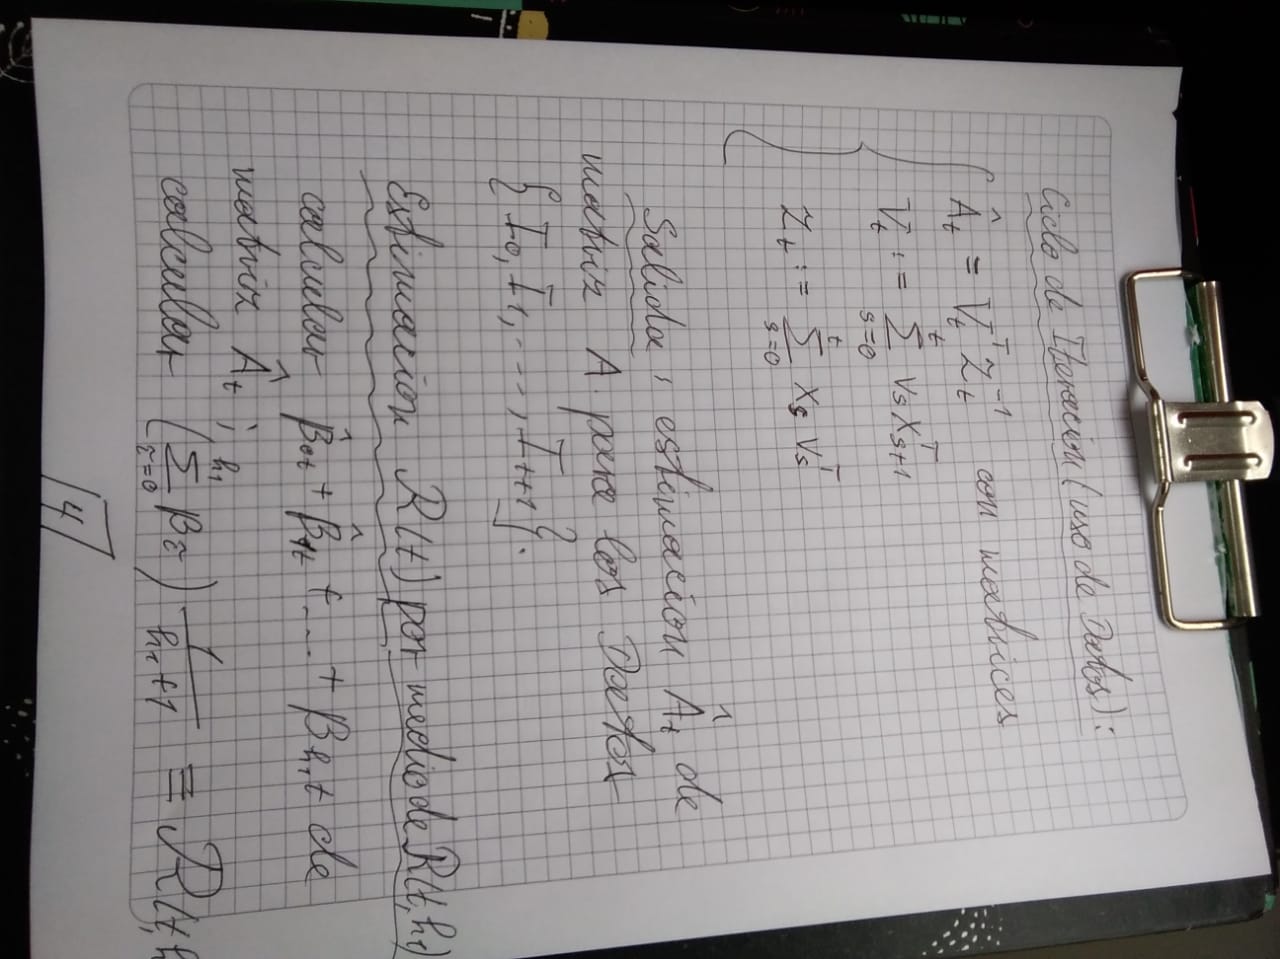 Ciclo de Iteración (uso de Datos):
Â_t = V_t^T Z_t^{-1} con matrices
V_t := Σ_{s=0}^{t} v_s x_{s+1}^T
Z_t := Σ_{s=0}^{t} x_s v_s^T
Salida: estimación Â_t de
matriz A para los Datos
{I_0, I_1, ..., I_{t+1}}.
Estimación R(t) por medio de R(t,h_1)
calcular β̂_{0t} + β̂_{1t} + ... + β_{h_1 t} de
matriz Â_t ;
calcular (Σ_{τ=0}^{h_1} β_τ) 1/(h_1+1) ≡ R(t,h
4